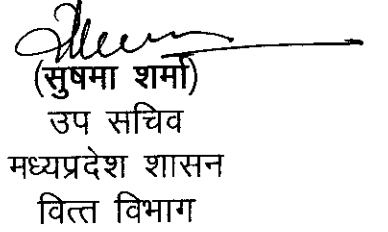 (सुषमा शर्मा)
उप सचिव
मध्यप्रदेश शासन
वित्त विभाग